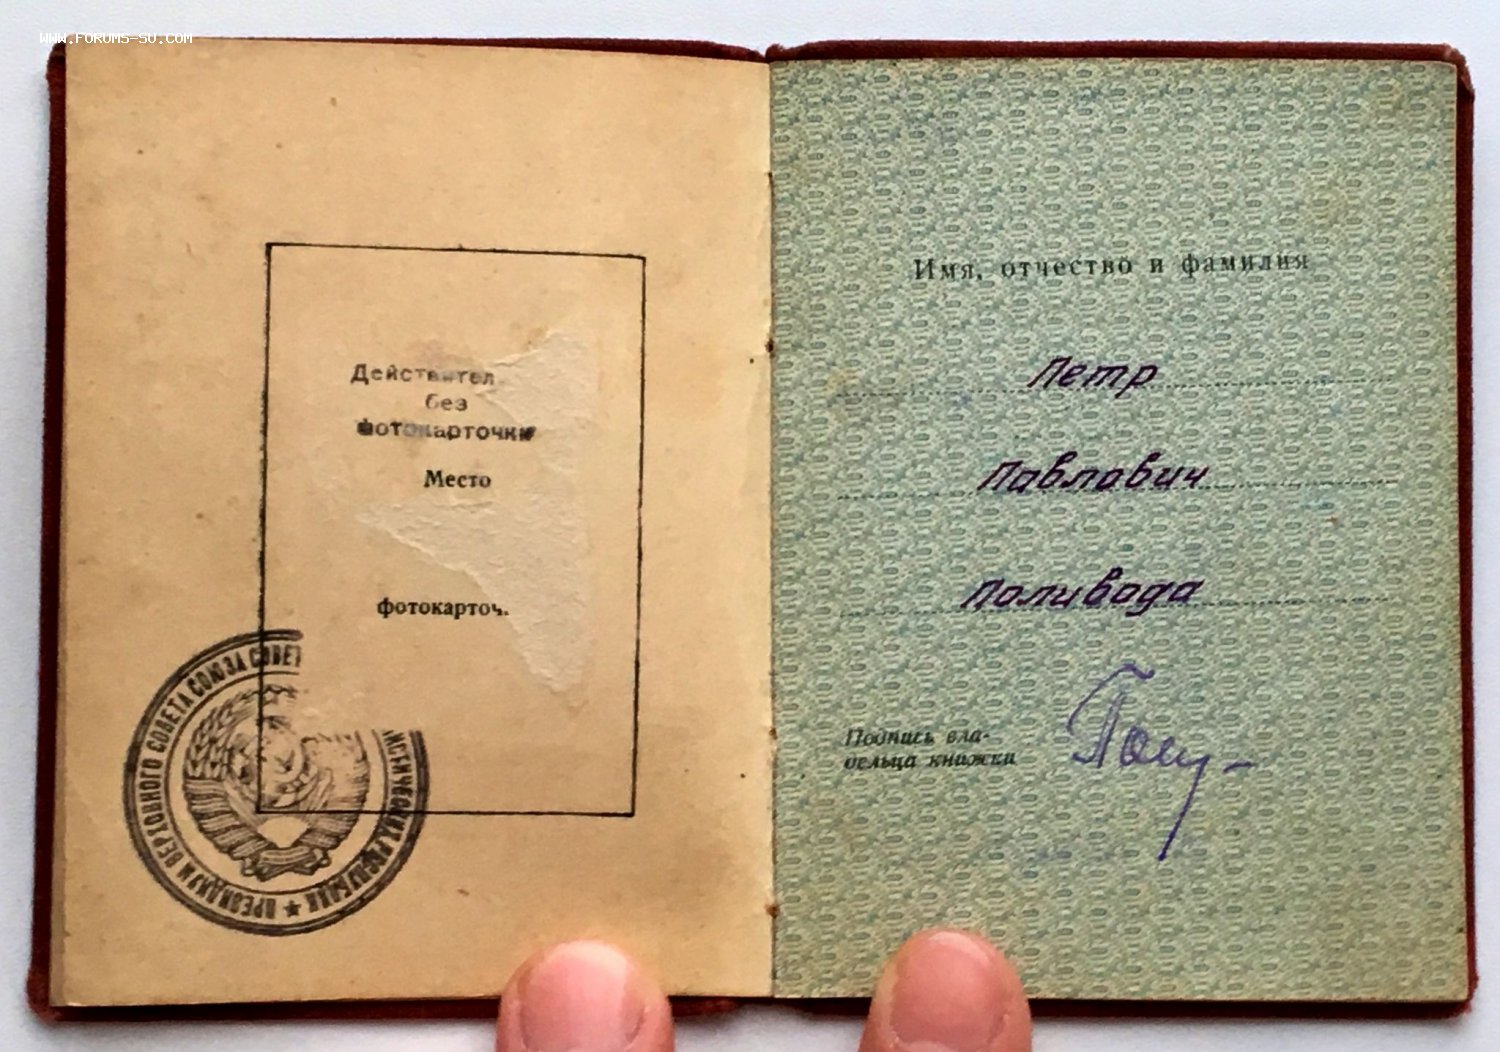 WWW.FORUMS-SU.COM
Действител
без
фотокарточки
Место
фотокарточ.
ПРЕЗИДИУМ ВЕРХОВНОГО СОВЕТА СОЮЗА СОВЕТ
ИСТИЧЕСКИХ РЕСПУБЛИК ★
Имя, отчество и фамилия
Петр
Павлович
Поливода
Подпись вла-
дельца книжки